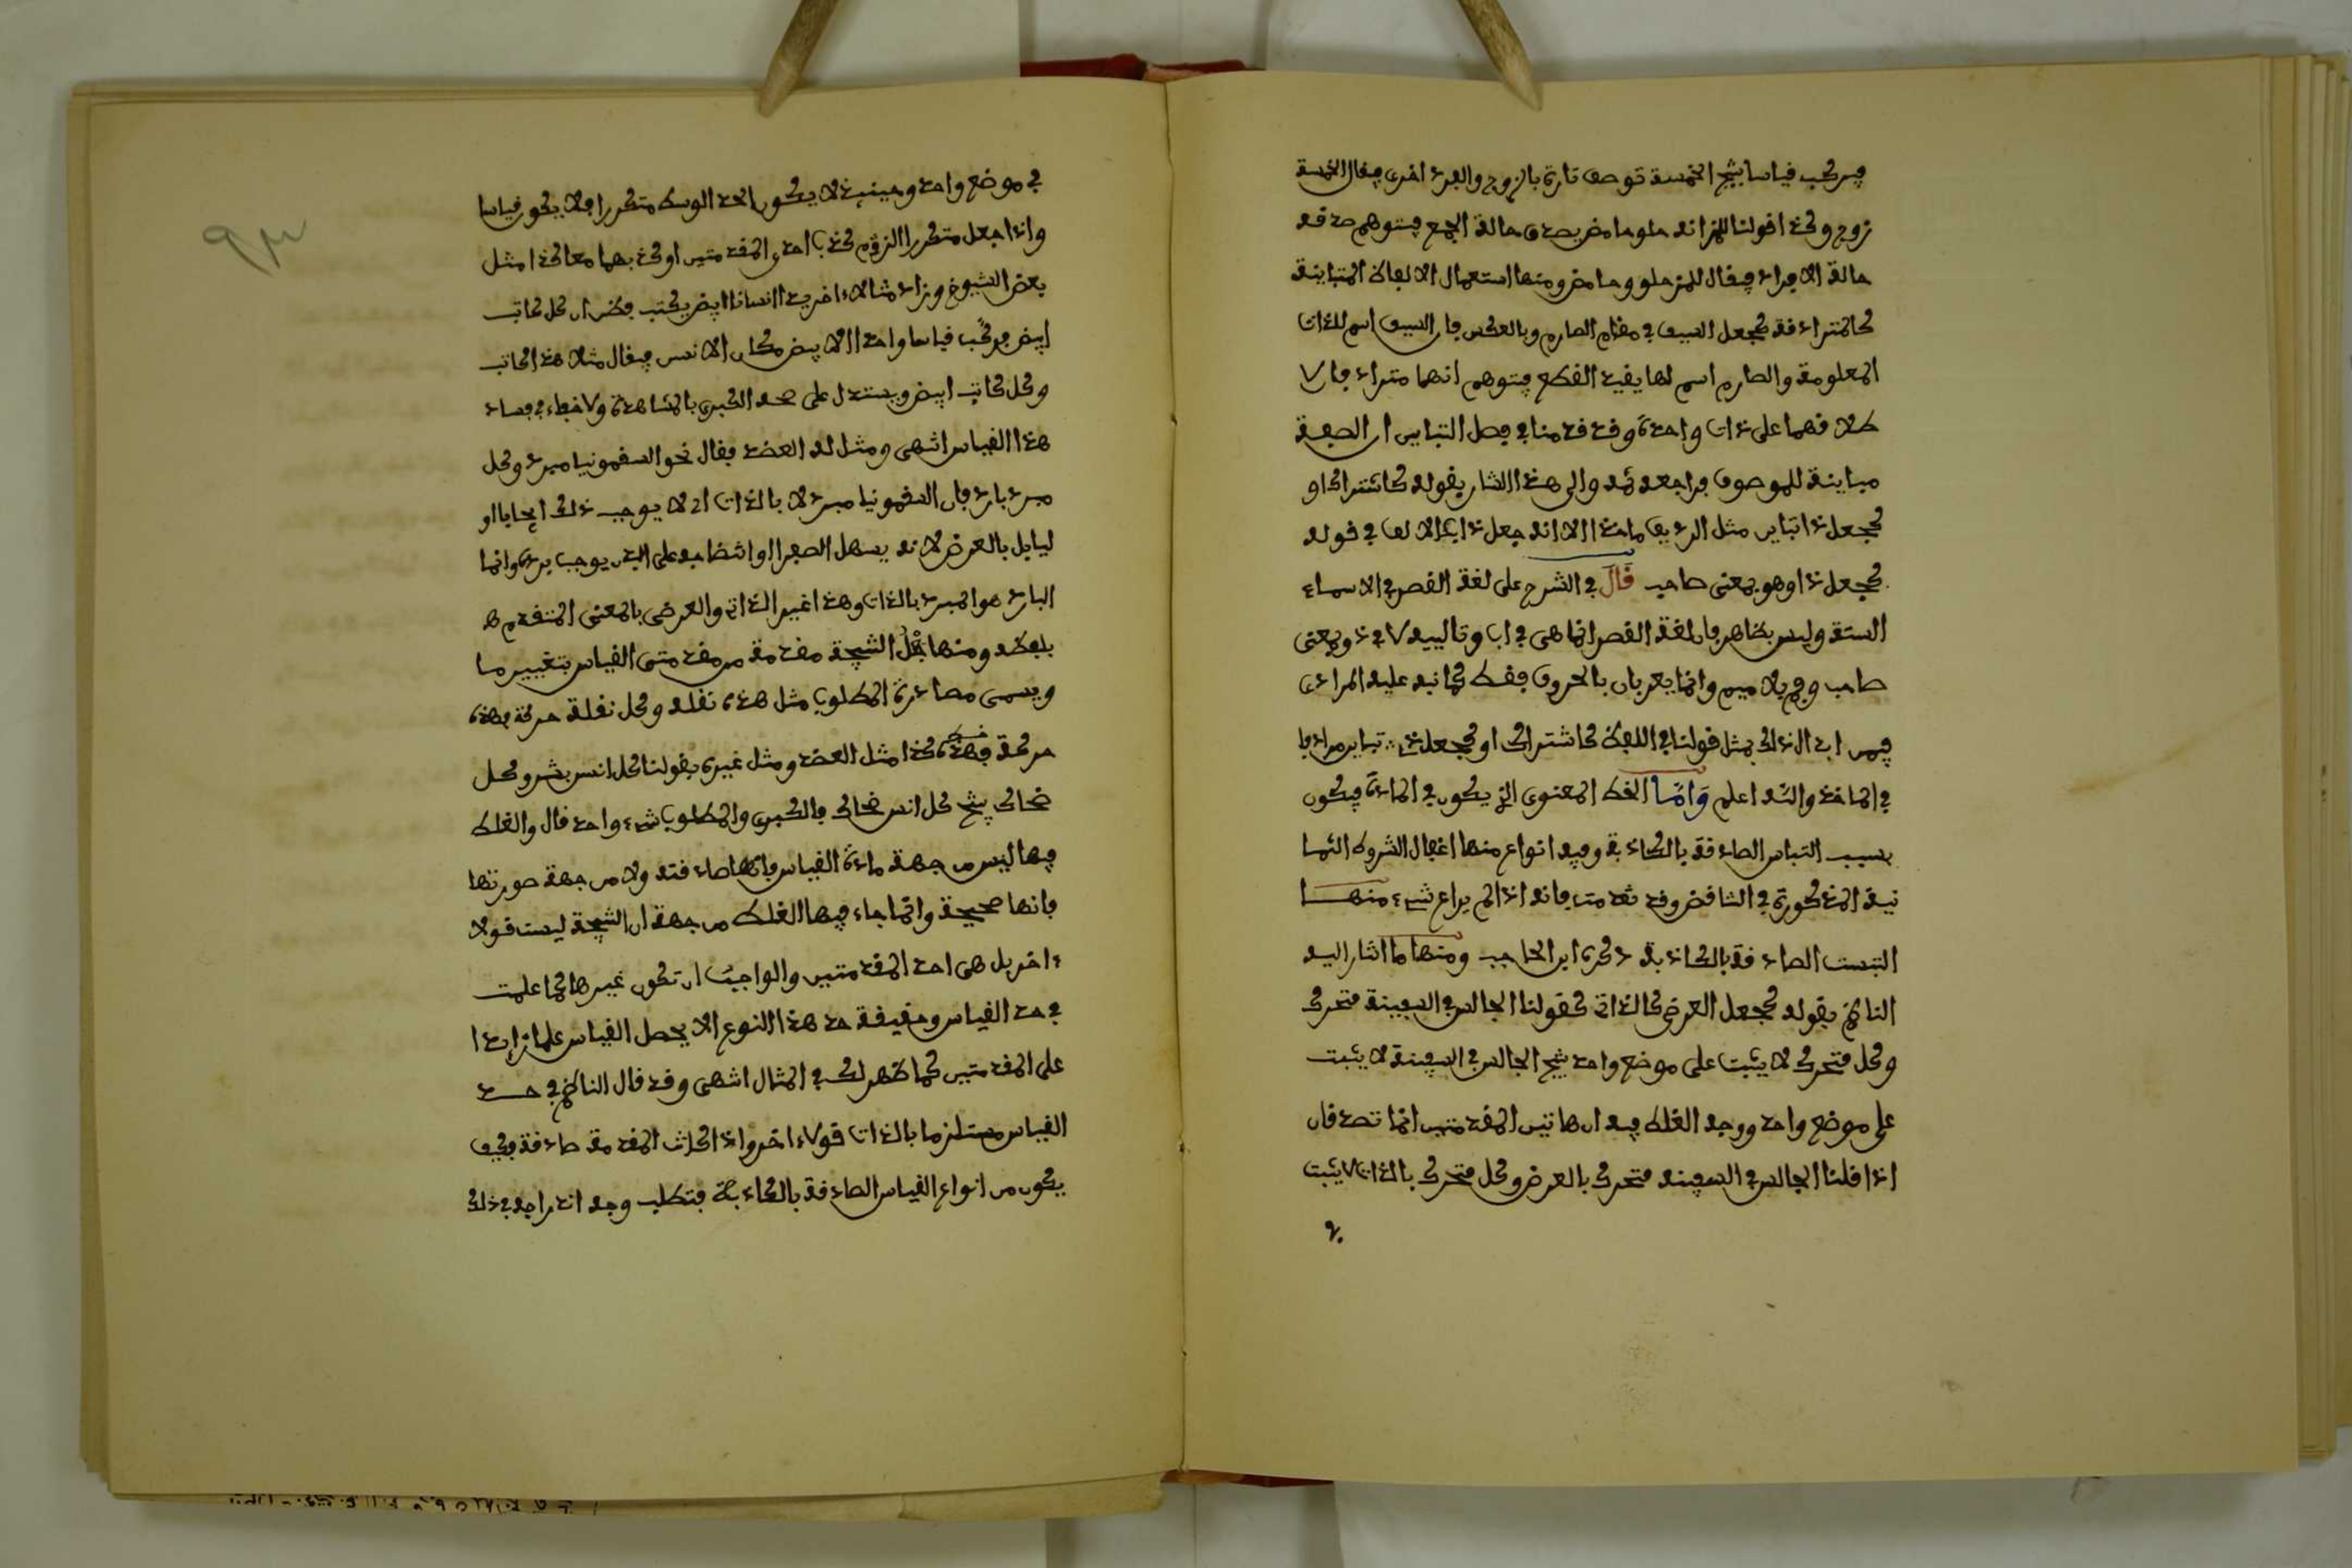 فيركب قياسا ينتج الخمسة توصف تارة بالزوج والفرد اخرى فيقال الخمسة
زوج وكذا قولنا للمز انه حلو حامض يصدق حالة الجمع فيتوهم صدقه
حالة الافراد فيقال للمز حلو وحامض ومنها استعمال الالفاظ المتباينة
كالمترادفة كجعل السيف في مقام الصارم وبالعكس فان السيف اسم للذات
المعلومة والصارم اسم لها بقيد القطع فيتوهم انهما مترادفان لا
طلاقهما على ذات واحدة وقد قدمنا في فصل التباين ان الصفة
مباينة للموصوف فراجعه ثمه والى هذا اشار بقوله كاشتراك او
كجعل ذا تباين مثل الرديف ماخذا الا انه جعل ذا بالالف في قوله
كجعل ذا وهو بمعنى صاحب قال في الشرح على لغة القصر في الاسماء
الستة وليس بظاهر فان لغة القصر انما هي في اب وتالييه لا في ذو بمعنى
صاحب وفم بلا ميم وانما يعربان بالحروف فقط كما نبه عليه المرادي
فيمر ابدال ذلك بمثل قولنا في اللفظ كاشتراك او كجعل ذا تباين مرادفا
في الماخذ والله اعلم وَامّا الخطا المعنوي الذي يكون في المادة فيكون
بسبب التباس الصادقة بالكاذبة وفيه انواع منها اغفال الشروط الثما
نية المذكورة في التناقض وقد تقدمت فانه اذا لم يراع شيء منها
التبست الصادقة بالكاذبة ذكره ابن الحاجب ومنها ما اشار اليه
الناظم بقوله كجعل العرضي كالذاتي كقولنا الجالس في السفينة متحرك
وكل متحرك لا يثبت على موضع واحد ينتج الجالس في السفينة لا يثبت
على موضع واحد ووجه الغلط فيه ان هاتين المقدمتين انما تصدقان
اذا قلنا الجالس في السفينة متحرك بالعرض وكل متحرك بالذات لا يثبت
في
٩٣
في موضع واحد وحينئذ لا يكون الحد الوسط متكررا فلا يكون قياسا
واذا جعل متكررا لزم كذب احدى المقدمتين او كذبهما معا كذا مثل
بعض الشيوخ وزاد مثالا ءاخر يرى انسانا ابيض يكتب فظن ان كل كاتب
ابيض فركب قياسا واحدا الابيض مكان الانس فيقال مثلا هذا كاتب
وكل كاتب ابيض ويستدل على صحة الكبرى بالمشاهدة ولا خفاء في فساد
هذا القياس انتهى ومثل له العضد فقال نحو السقمونيا مبرد وكل
مبرد بارد فان السقمونيا مبرد لا بالذات اي لا يوجب ذلك ايجابا او
ليا بل بالعرض لانه يسهل الصفرا وانقضاضه على البدن يوجب برده وانما
البارد هو المبرد بالذات وهذا غير الذاتي والعرضي بالمعنى المتقدم ه
بلفظه ومنها جَعْلُ النتيجة مقدمة من مقدمتي القياس بتغيير ما
ويسمى مصادرة المطلوب مثل هذه نقلة وكل نقلة حركة فهذه
حركة فهذه كذا مثل العضد ومثل غيره بقولنا كل انس بشر وكل
ضحاك ينتج كل انس ضحاك فالكبرى والمطلوب شيء واحد قال والغلط
فيها ليس من جهة مادة القياس فانها صادقة ولا من جهة صورتها
فانها صحيحة وانما جاء فيها الغلط من جهة ان النتيجة ليست قولا
ءاخر بل هي احد المقدمتين والواجب ان تكون غيرها كما علمت
في حد القياس وحقيقة حد هذا النوع ان لا يحصل القياس علما زايدا
على المقدمتين كما ظهر لك في المثال انتهى وقد قال الناظم في حد
القياس مستلزما بالذات قولا ءاخر واذا كانت المقدمة صادقة فكيف
يكون من انواع القياس الصادقة بالكاذبة فتطلب وجه اندراجه في ذلك